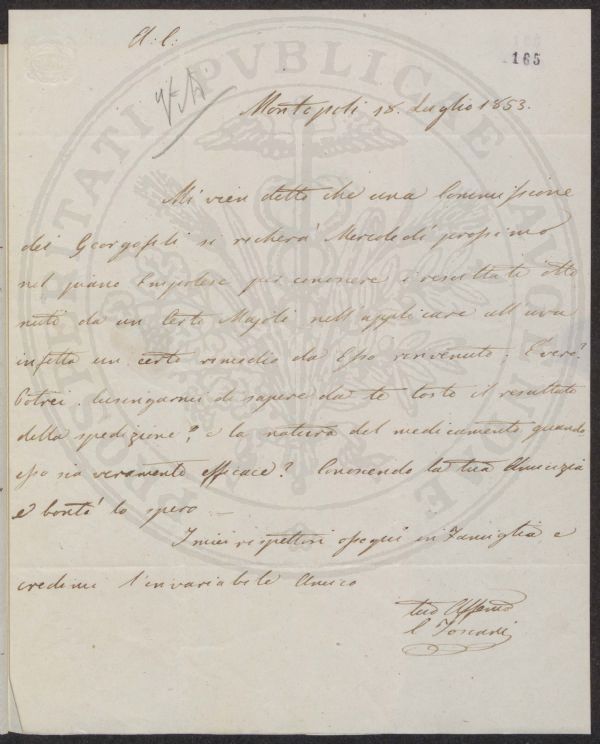 165
Montopoli 18. Luglio 1853.
Mi vien detto che una Commissione
dei Georgofili si recherà Mercoledì prossimo
nel piano Empolese per conoscere i resultati otte
nuti da un certo Majoli nell'applicare all'uva
infetta un certo rimedio da Esso rinvenuto. È vero?
Potrei lusingarmi di sapere da te tosto il resultato
della spedizione?, e la natura del medicamento quando
esso sia veramente efficace? Conoscendo la tua Amicizia
e bontà lo spero
I miei rispettosi ossequi in Famiglia, e
credimi l'invariabile Amico
tuo Affmo
PROSPERITATI PVBLICAE AVGENDAE